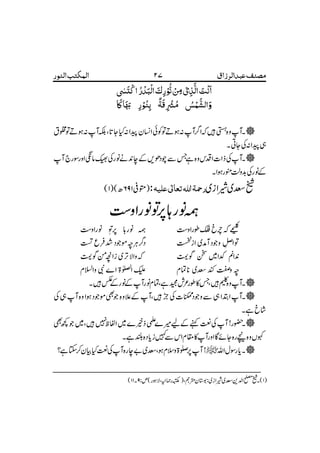 مصنف عبدالرزاق ۲۷ المکتب النور
اَنْتَ الَّذِیْ مِنْ نُّوْرِكَ الْبَدْرُ اكْتَسٰی
وَالشَّمْسُ مُشْرِقَةٌ بِنُوْرِ بَهَاكَا
آپ وہ ہستی ہیں کہ اگر آپ نہ ہوتے تو کوئی انسان پیدا نہ کیا جاتا، بلکہ آپ نہ ہوتے تو مخلوق
ہی پیدا نہ کی جاتی۔
آپ کی ذات اقدس وہ ہے جس سے چودھویں کے چاند نے نور کی بھیک مانگی اور سورج آپ
کے نور کی بدولت منور ہوا۔
شیخ سعدی شیرازی رحمۃ اللہ تعالیٰ علیہ: (متوفی ۶۹۱ھ) (۱)
ہمہ نورہا پرتو نور اوست
کلیمے کہ چرخ فلک طور اوست ہمہ نورہا پرتو نور اوست
تو اصل وجود آمدی از نخست دگر ہرچہ موجود شد فرع تست
ندانم کدامیں سخن گویمت کہ والاتری زانچہ من گویمت
چہ وصفت کند سعدی ناتمام علیک الصلوٰۃ اے نبی والسلام
آپ وہ کلیم ہیں جس کا طور عرش مجید ہے، تمام نور آپ کے نور کے عکس ہیں۔
آپ ابتدا ہی سے وجود ممکنات کی جڑ ہیں، آپ کے علاوہ جو بھی موجود ہوا وہ آپ ہی کی
شاخ ہے۔
حضور! آپ کی نعت کہنے کے لیے میرے علمی ذخیرے میں الفاظ نہیں ہیں، میں جو کچھ بھی
کہوں وہ نیچے رہ جائے گا اور آپ کا مقام اس سے کہیں زیادہ بلند ہے۔
یا رسول اللہ ﷺ! آپ پر صلوٰۃ و سلام ہو، سعدی بے چارہ آپ کی نعت کیا بیان کر سکتا ہے؟